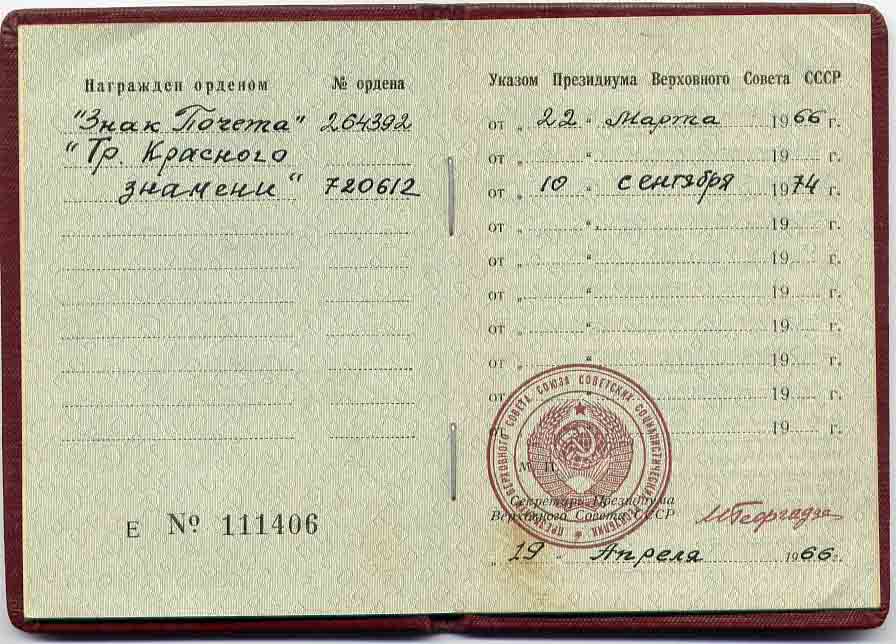 Награжден орденом № ордена
"Знак Почета" 264392
"Тр. Красного
знамени" 720612
Е № 111406
Указом Президиума Верховного Совета СССР
от „ 22 “ Марта 1966 г.
от „ “ 19 г.
от „ 10 “ сентября 1974 г.
от „ “ 19 г.
от „ “ 19 г.
от „ “ 19 г.
от „ “ 19 г.
от „ “ 19 г.
от „ “ 19 г.
от „ “ 19 г.
ПРЕЗИДИУМ ВЕРХОВНОГО СОВЕТА СОЮЗА СОВЕТСКИХ СОЦИАЛИСТИЧЕСКИХ РЕСПУБЛИК
М. П.
Секретарь Президиума
Верховного Совета СССР МГеоргадзе
„ 19 “ Апреля 1966 г.